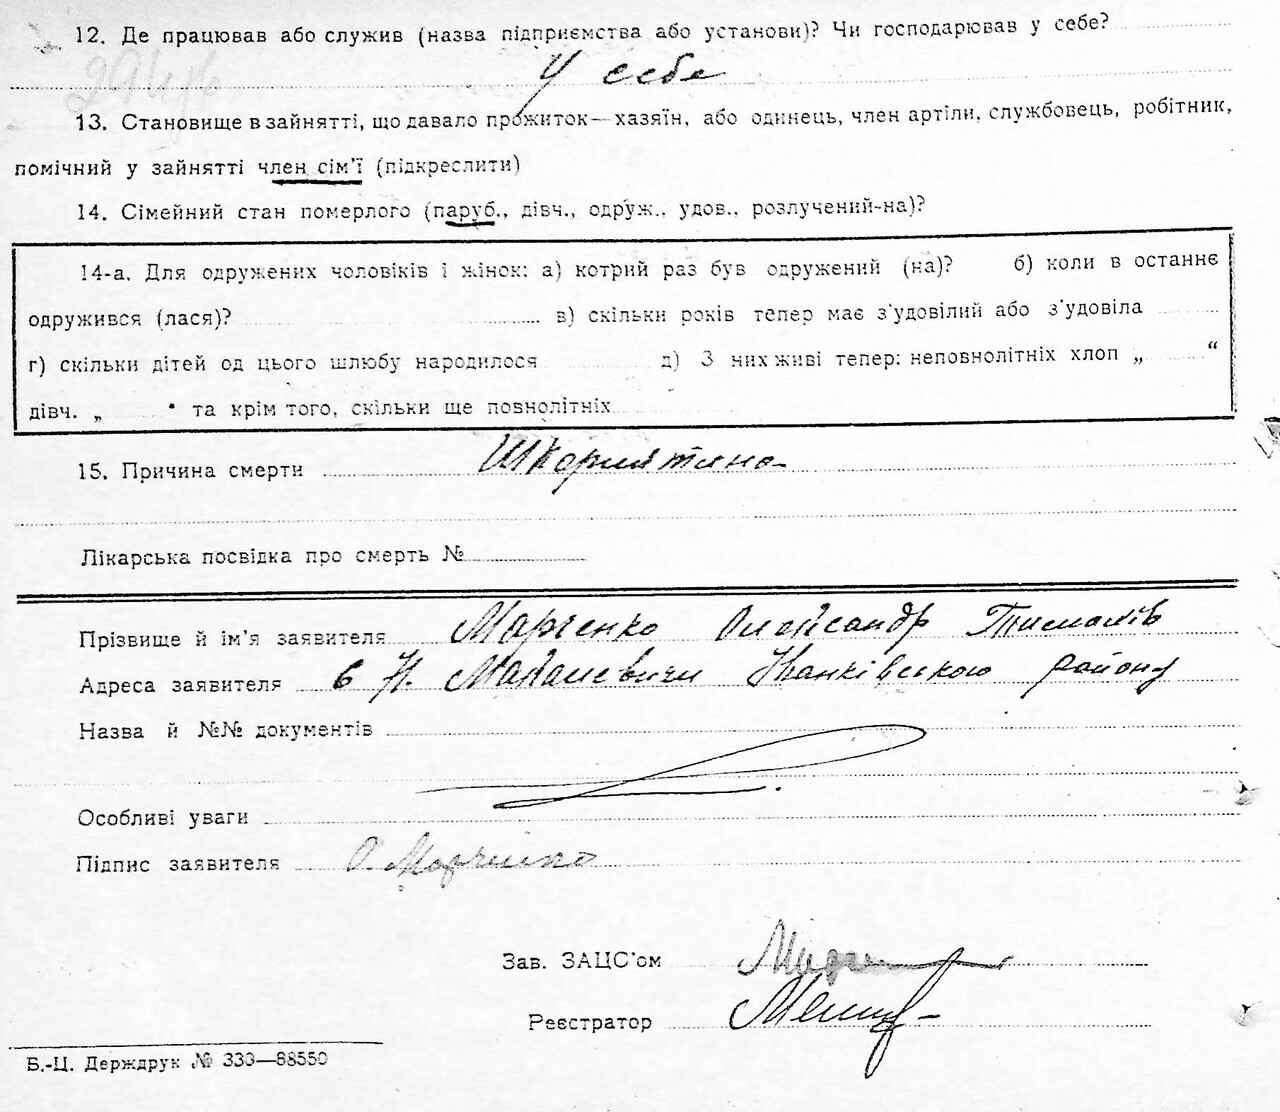 12. Де працював або служив (назва підприємства або установи)? Чи господарював у себе?
У себе
13. Становище в зайнятті, що давало прожиток—хазяїн, або одинець, член артіли, службовець, робітник,
помічний у зайнятті член сім'ї (підкреслити)
14. Сімейний стан померлого (паруб., дівч., одруж., удов., розлучений-на)?
14-а. Для одружених чоловіків і жінок: а) котрий раз був одружений (на)? б) коли в останнє
одружився (лася)? в) скільки років тепер має з'удовілий або з'удовіла
г) скільки дітей од цього шлюбу народилося д) З них живі тепер: неповнолітніх хлоп „ “
дівч. „ “ та крім того, скільки ще повнолітніх
15. Причина смерти Шкорлятина
Лікарська посвідка про смерть №
Прізвище й ім'я заявителя Марченко Олександр
Адреса заявителя Іванківського району
Назва й №№ документів
Особливі уваги
Підпис заявителя О. Марченко
Зав. ЗАЦС'ом
Реєстратор
Б.-Ц. Держдрук № 330—88550